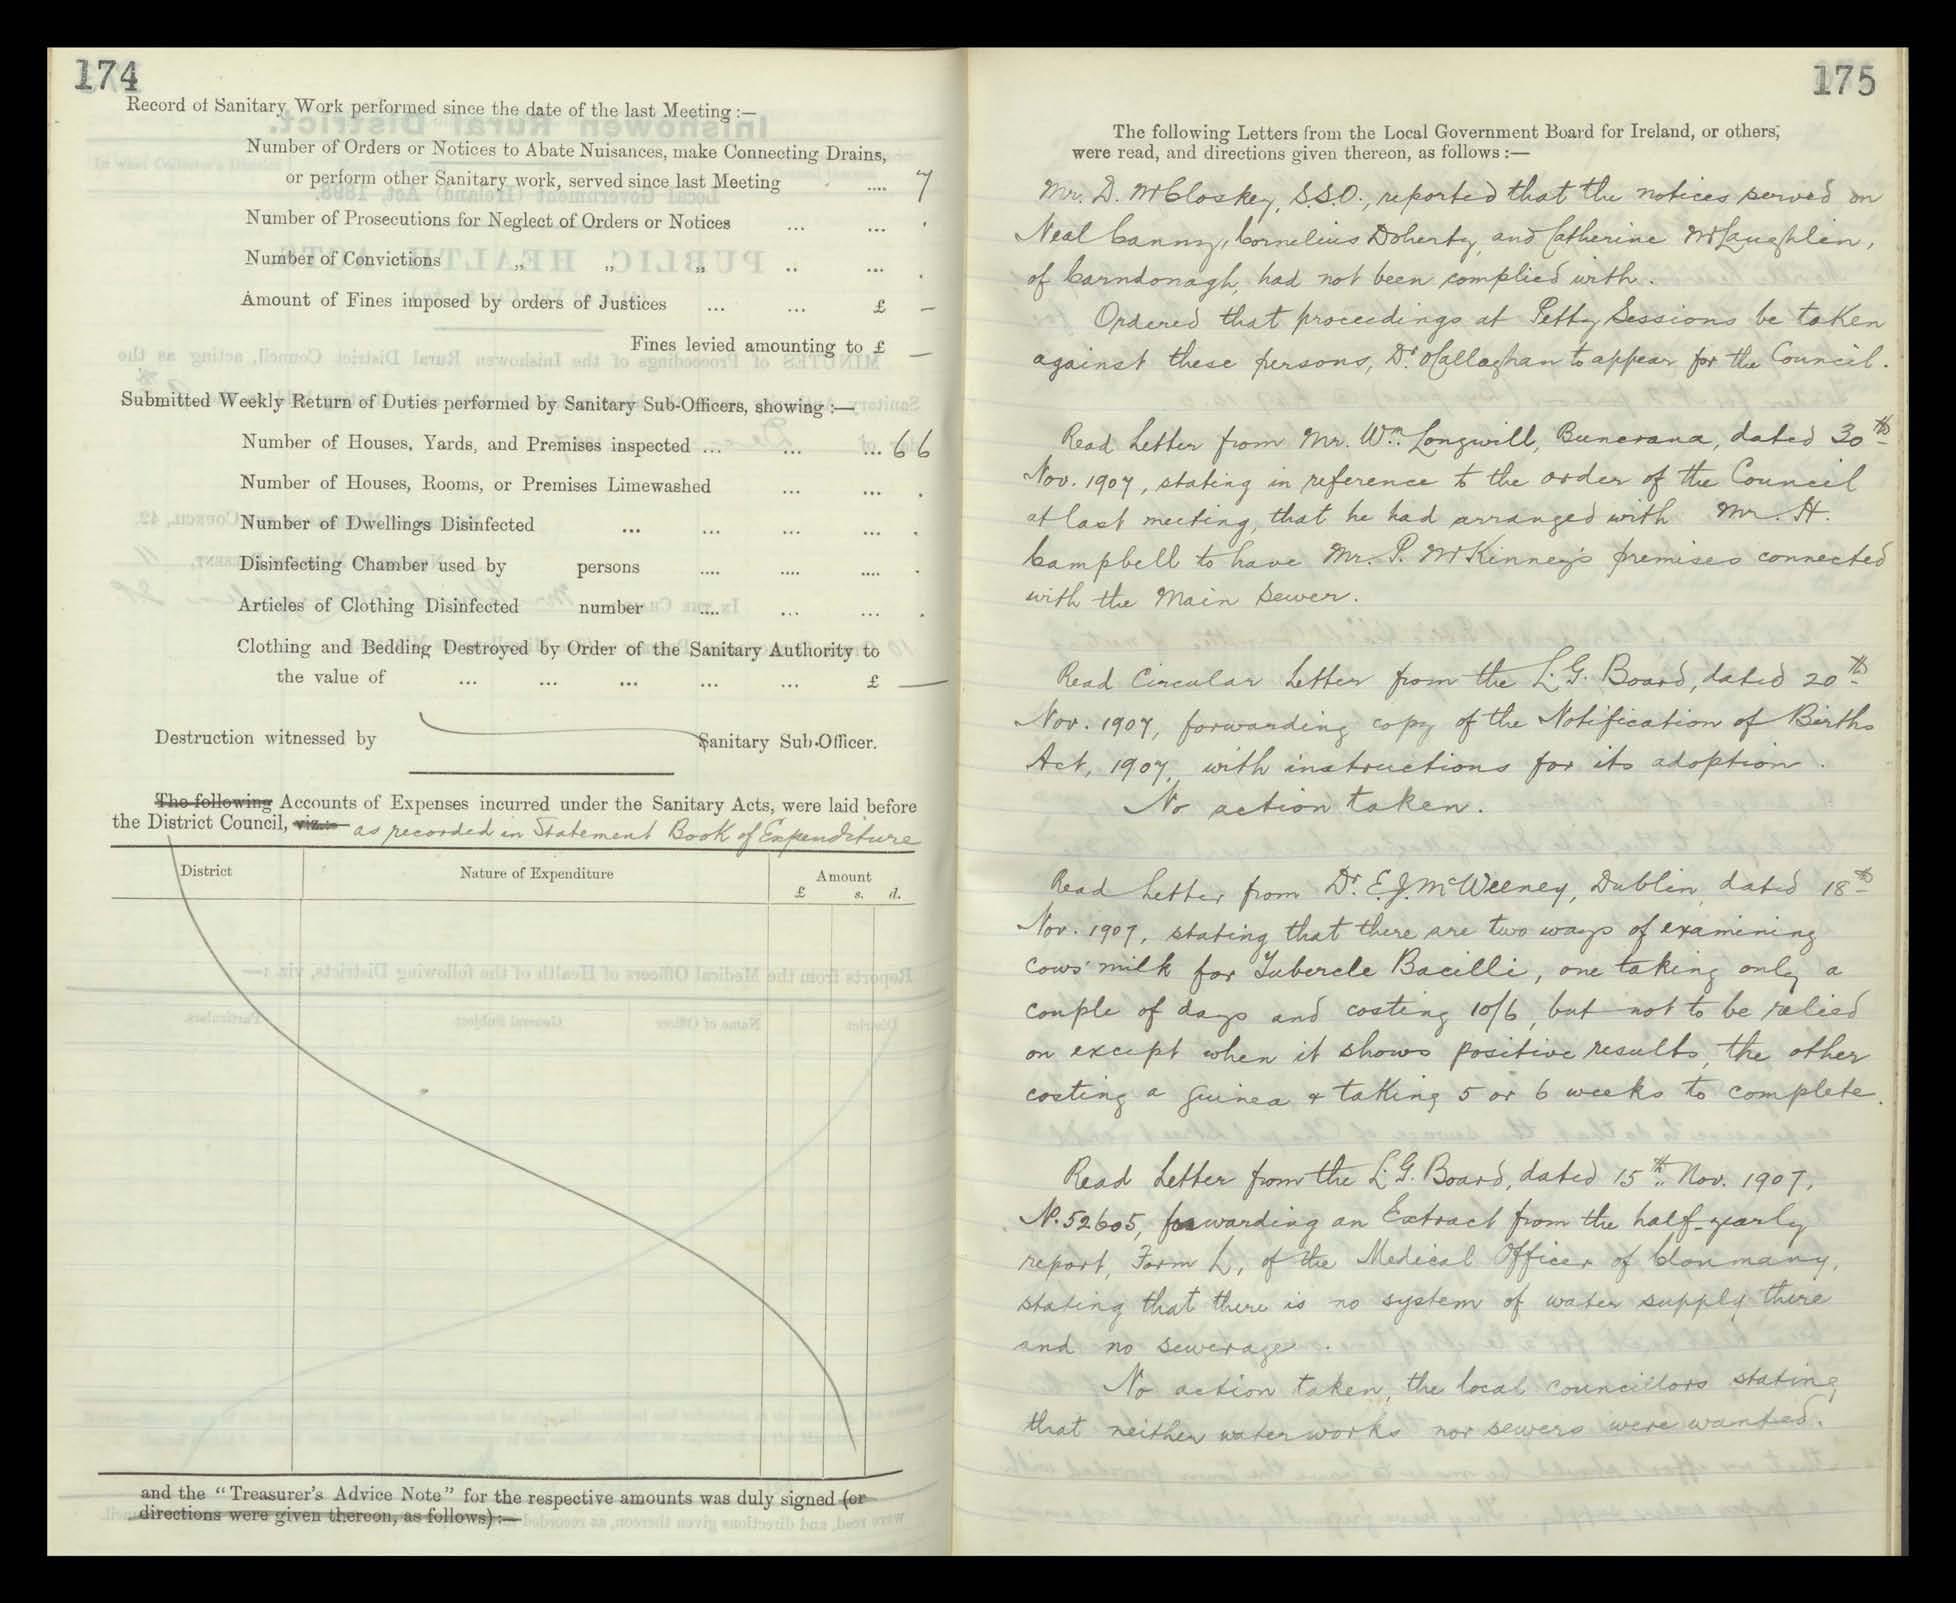 174
Record of Sanitary Work performed since the date of the last Meeting :—
Number of Orders or Notices to Abate Nuisances, make Connecting Drains,
or perform other Sanitary work, served since last Meeting .... 7
Number of Prosecutions for Neglect of Orders or Notices ... ... .
Number of Convictions „ „ „ .. ... .
Amount of Fines imposed by orders of Justices ... ... £ —
Fines levied amounting to £ —
Submitted Weekly Return of Duties performed by Sanitary Sub-Officers, showing :—
Number of Houses, Yards, and Premises inspected ... ... ... 66
Number of Houses, Rooms, or Premises Limewashed ... ... .
Number of Dwellings Disinfected ... ... ... ... .
Disinfecting Chamber used by persons .... .... .... .
Articles of Clothing Disinfected number .... ... ... .
Clothing and Bedding Destroyed by Order of the Sanitary Authority to
the value of ... ... ... ... ... £ —
Destruction witnessed by Sanitary Sub-Officer.
The following Accounts of Expenses incurred under the Sanitary Acts, were laid before
the District Council, viz.:— as recorded in Statement Book of Expenditure
District Nature of Expenditure Amount
£ s. d.
and the "Treasurer's Advice Note" for the respective amounts was duly signed (or
directions were given thereon, as follows) :—
175
The following Letters from the Local Government Board for Ireland, or others,
were read, and directions given thereon, as follows :—
Mr. D. McCloskey, S.S.O., reported that the notices served on
Neal Canny, Cornelius Doherty, and Catherine McLaughlin,
of Carndonagh, had not been complied with.
Ordered that proceedings at Petty Sessions be taken
against these persons, Dr. O'Callaghan to appear for the Council.
Read Letter from Mr. Wm. Longwill, Buncrana, dated 30th
Nov. 1907, stating in reference to the order of the Council
at last meeting, that he had arranged with Mr. H.
Campbell to have Mr. P. McKinney's premises connected
with the Main Sewer.
Read Circular Letter from the L.G. Board, dated 20th
Nov. 1907, forwarding copy of the Notification of Births
Act, 1907, with instructions for its adoption.
No action taken.
Read Letter from Dr. E.J. McWeeney, Dublin, dated 18th
Nov. 1907, stating that there are two ways of examining
cows' milk for Tubercle Bacilli, one taking only a
couple of days and costing 10/6, but not to be relied
on except when it shows positive results, the other
costing a guinea & taking 5 or 6 weeks to complete.
Read Letter from the L.G. Board, dated 15th Nov. 1907,
No. 52605, forwarding an Extract from the half-yearly
report, Form L, of the Medical Officer of Clonmany,
stating that there is no system of water supply there
and no sewerage.
No action taken, the local councillors stating
that neither waterworks nor sewers were wanted.